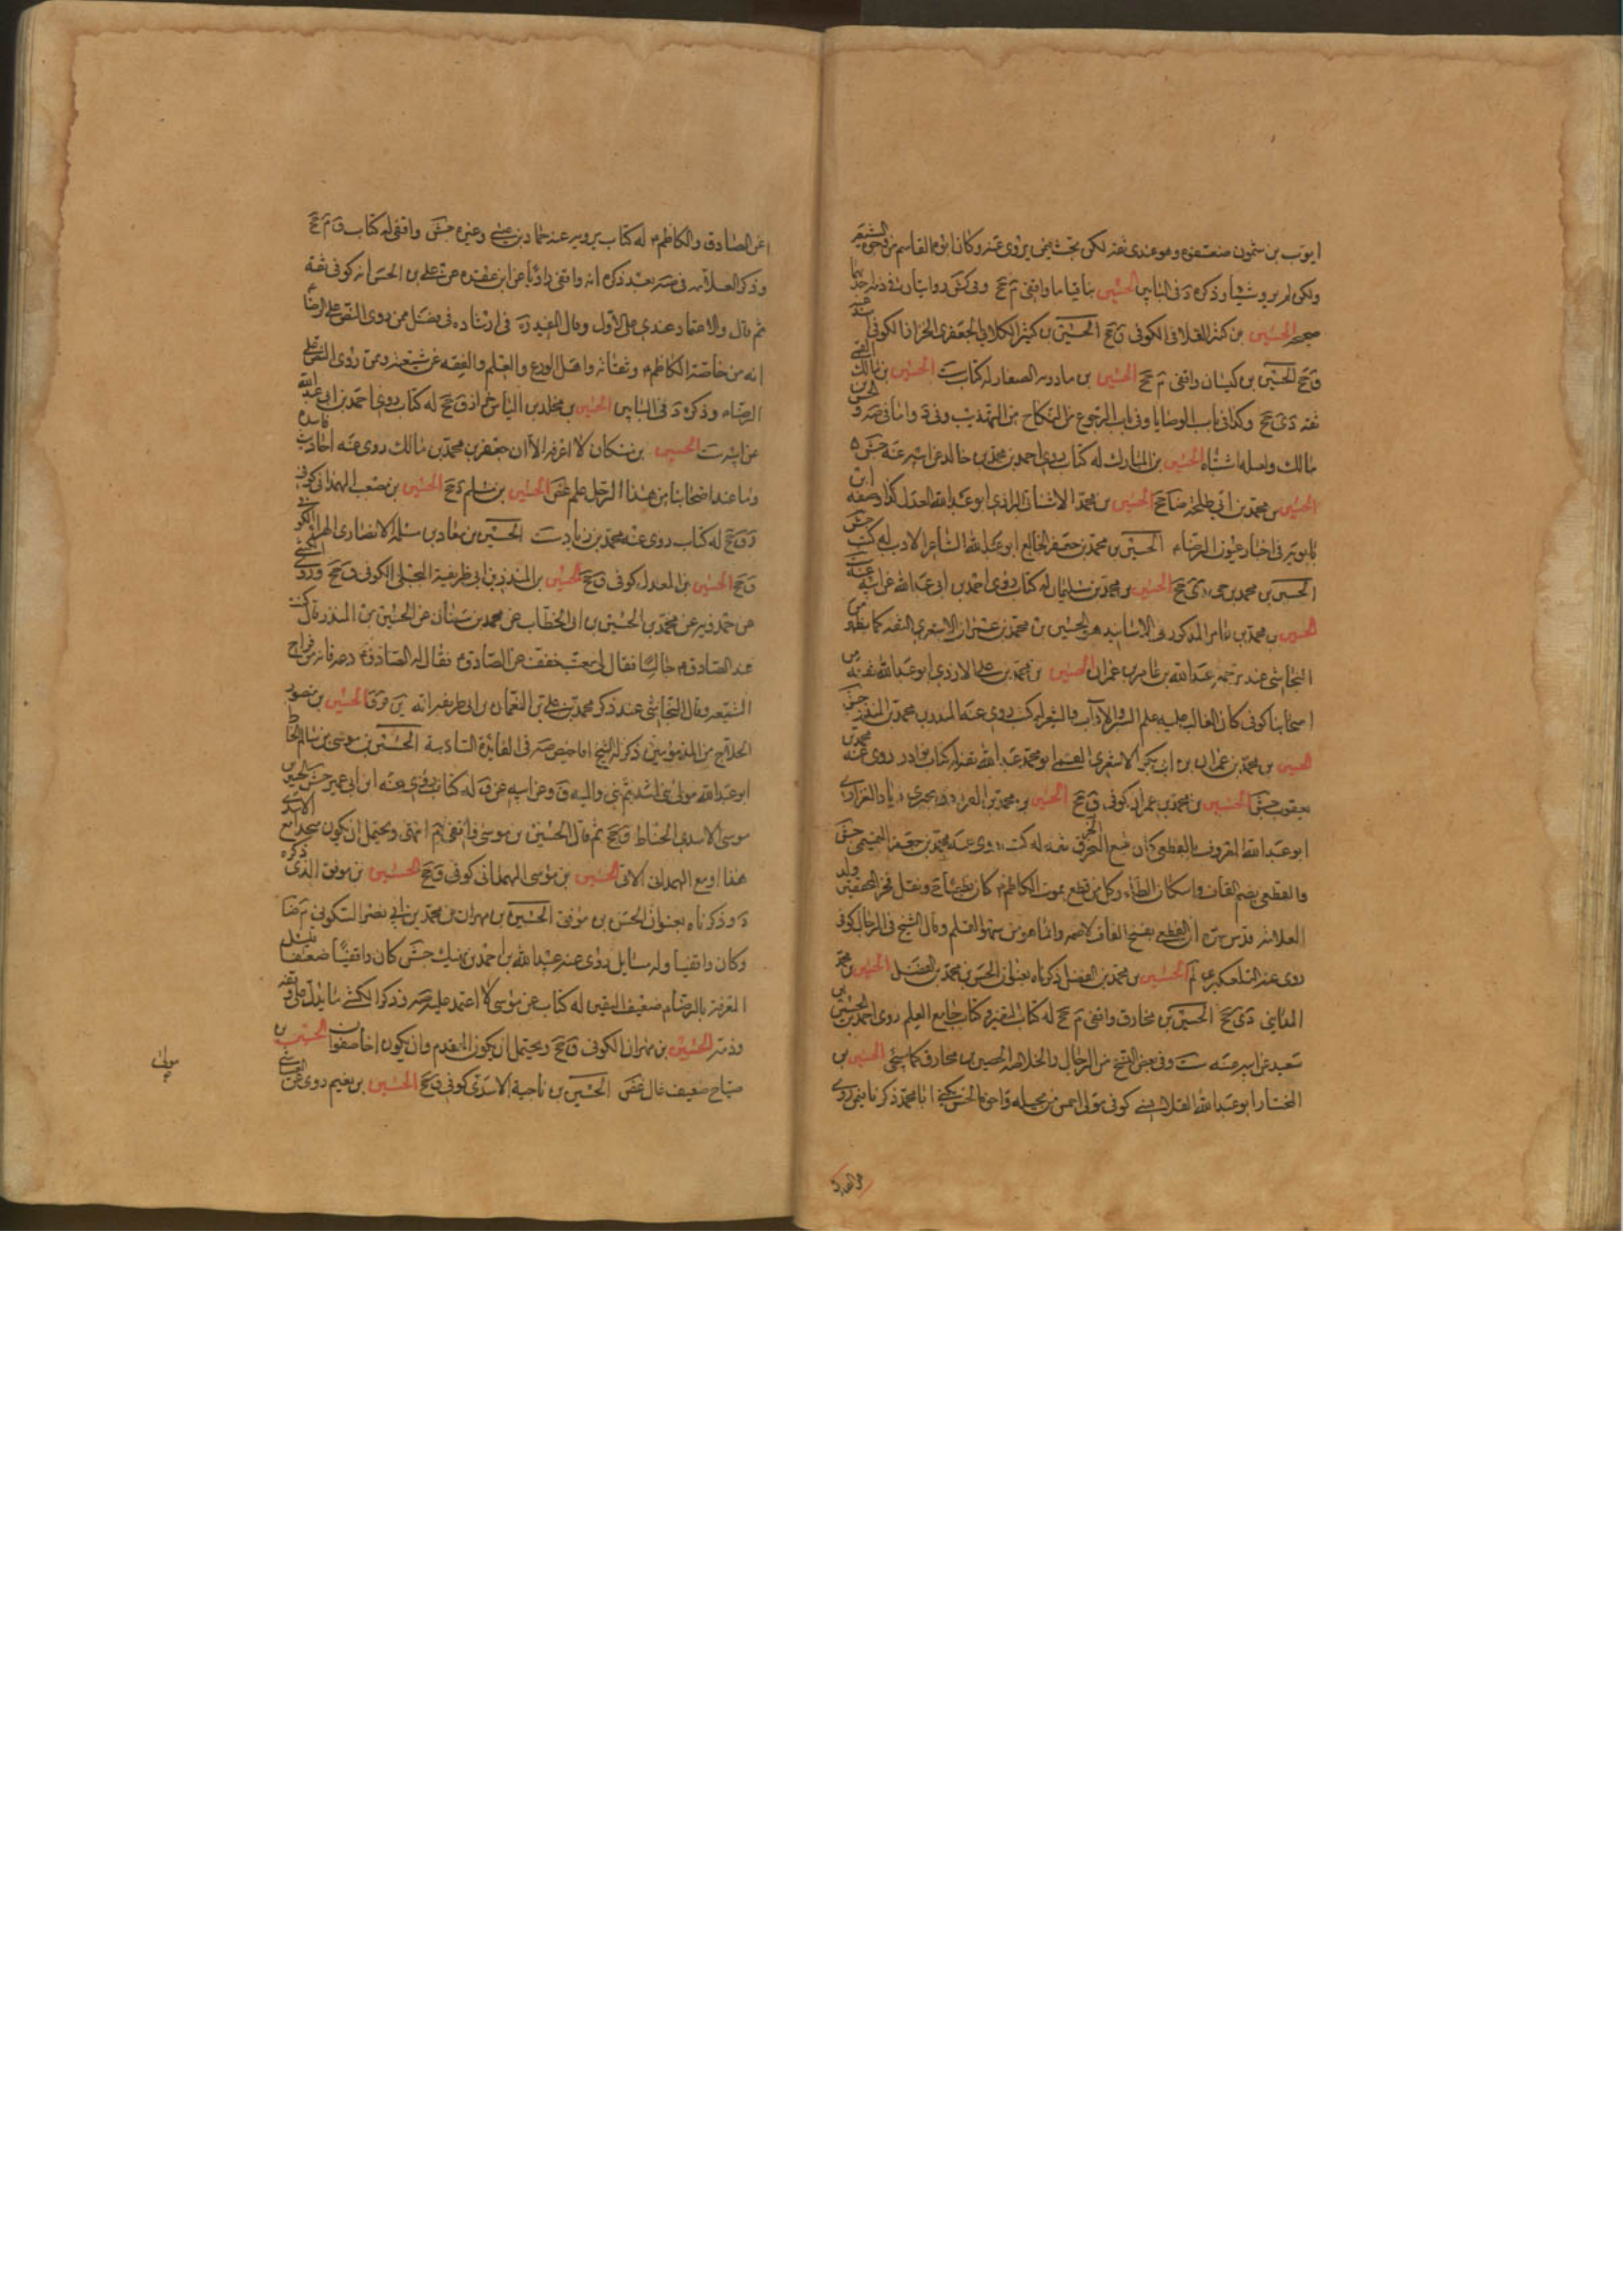 ايوب بن سمون ضعفوه وهو عندي ثقة لكن بحث فيمن يروي عنه وكان ابوه القاسم من وجوه الشيعة
ولكن لم يرو شيئا وذكره د في البابين الحسين بن قياما واقفي م جخ وفي كش روايتان في ذمه
الحسين بن كثير القلانسي الكوفي ق جخ الحسين بن كثير الكلابي الجعفري الخزاز الكوفي
ق جخ الحسين بن كيسان واقفي م جخ الحسين بن مادويه الصفار له كتاب ست الحسين بن مالك القمي
ثقة دي جخ وكذا في باب الوصايا وفي باب الرجوع عن النكاح من التهذيب وفي د واما في صه و الحسن بن
مالك واصله اشتباه الحسين بن المبارك له كتاب روى احمد بن محمد بن خالد عن ابيه عنه جش
الحسين بن محمد بن ابي طلحة ضا جخ الحسين بن محمد الاشناني الرازي ابو عبد الله العدل كذا وصفه ابن
بابويه في اخبار عيون الرضا الحسين بن محمد بن جعفر الخالع ابو عبد الله الشاعر الاديب له كتب جش
الحسين بن محمد بن حي دي جخ الحسين بن محمد بن سليمان له كتاب روى احمد بن ابي عبد الله عن ابيه عنه ست
الحسين بن محمد بن عامر المذكور في الاسانيد هو الحسين بن محمد بن عمران الاشعري الثقة كما يظهر من
النجاشي عند ترجمة عبد الله بن عامر بن عمران الحسين بن محمد بن علي الازدي ابو عبد الله ثقة من
اصحابنا كوفي كان الغالب عليه علم السير والاداب والشعر له كتب روى عنه المنذر بن محمد بن المنذر جش
الحسين بن محمد بن عمران بن ابي بكر الاشعري القمي ابو محمد عبد الله ثقة له كتاب نوادر روى عنه محمد بن
يعقوب جش الحسين بن محمد بن عمران كوفي ق جخ الحسين بن محمد بن الفرزدق بجير بن زياد الفزاري
ابو عبد الله المعروف بالقطعي كان يبيع الخرق ثقة له كتب روى عنه محمد بن جعفر التميمي جش
والقطعي بضم القاف واسكان الطاء وكل من قطع بموت الكاظم كان قطعيا صح ونقل فخر المحققين ولد
العلامة قدس سره ان القطعي بفتح القاف لا ضمه وانما هو من سهو القلم وقال الشيخ في الرجال كوفي
روى عنه التلعكبري لم الحسين بن محمد بن الفضل ذكرناه بعنوان الحسن بن محمد بن الفضل الحسين بن محمد
المدائني دي جخ الحسين بن مخارق واقفي م جخ له كتاب التفسير وكتاب جامع العلم روى احمد بن الحسين بن
سعيد عن ابيه عنه ست وفي بعض النسخ من الرجال والخلاصة الحصين بن مخارق كما سيجئ الحسين بن
المختار ابو عبد الله القلانسي كوفي مولى احمس من بجيلة واخوه الحسن يكنى ابا محمد ذكر فيمن روى
عن الصادق
عن الصادق والكاظم له كتاب يرويه عنه حماد بن عيسى وغيره جش واقفي له كتاب ق م جخ
وذكر العلامة في صه بعد ذكره انه واقفي راويا عن ابن عقده عن علي بن الحسن انه كوفي ثقة
ثم قال والاعتماد عندي على الاول وقال المفيد ره في ارشاده في فصل من روى النص على الرضا
انه من خاصة الكاظم وثقاته واهل الورع والعلم والفقه من شيعته وممن روى النص على
الرضا وذكره د في البابين الحسين بن مخلد بن الياس خزاز ق جخ له كتاب روى احمد بن ابي عبد الله
عن ابيه ست الحسين بن مسكان لا اعرفه الا ان جعفر بن محمد بن مالك روى عنه احاديث فاسدة
وما عند اصحابنا من هذا الرجل علم غض الحسين بن مسلم د جخ الحسين بن مصعب الهمداني كوفي
ق جخ له كتاب روى عنه محمد بن زياد ست الحسين بن معاذ بن مسلم الانصاري الهراء الكوفي
ق جخ الحسين بن المعدل كوفي ق جخ الحسين بن المنذر بن ابي طريفة البجلي الكوفي ق جخ وروى الكشي
عن حمدويه عن محمد بن الحسين بن ابي الخطاب عن محمد بن سنان عن الحسين بن المنذر قال كنت
عند الصادق جالسا فقال لي معتب خفف عن الصادق فقال له الصادق دعه فانه من فراخ
الشيعة وقال النجاشي عند ذكر محمد بن علي بن النعمان بن ابي طريفة انه ين وق وقر الحسين بن منصور
الحلاج من المذمومين ذكر له الشيخ اقاصيص صه في الفائدة السادسة الحسين بن موسى بن سالم الحناط
ابو عبد الله مولى بني اسد ثم بني والبة ق وعن ابيه عن ق له كتاب روى عنه ابن ابي عمير جش الحسين بن
موسى الاسدي الحناط ق جخ ثم قال الحسين بن موسى واقفي م انتهى ويحتمل ان يكون متحدا مع الاسدي
هذا او مع الهمداني الاتي الحسين بن موسى الهمداني كوفي ق جخ الحسين بن موفق الذي ذكره
د وذكرناه بعنوان الحسن بن موفق الحسين بن مهران بن محمد بن ابي نصر السكوني م ضا
وكان واقفيا وله مسايل روى عنه عبد الله بن احمد بن نهيك جش كان واقفيا ضعيفا
المعرفة بالرضا ضعيف اليقين له كتاب عن موسى لا اعتمد عليه صه وذكر الكشي ما يدل على وقفه
وذمه الحسين بن مهران الكوفي ق جخ ويحتمل ان يكون المقدم وان يكون اخا صفوان الحسين بن
مياح ضعيف غال غض الحسين بن ناجية الاسدي كوفي ق جخ الحسين بن نعيم روى عن
مولى